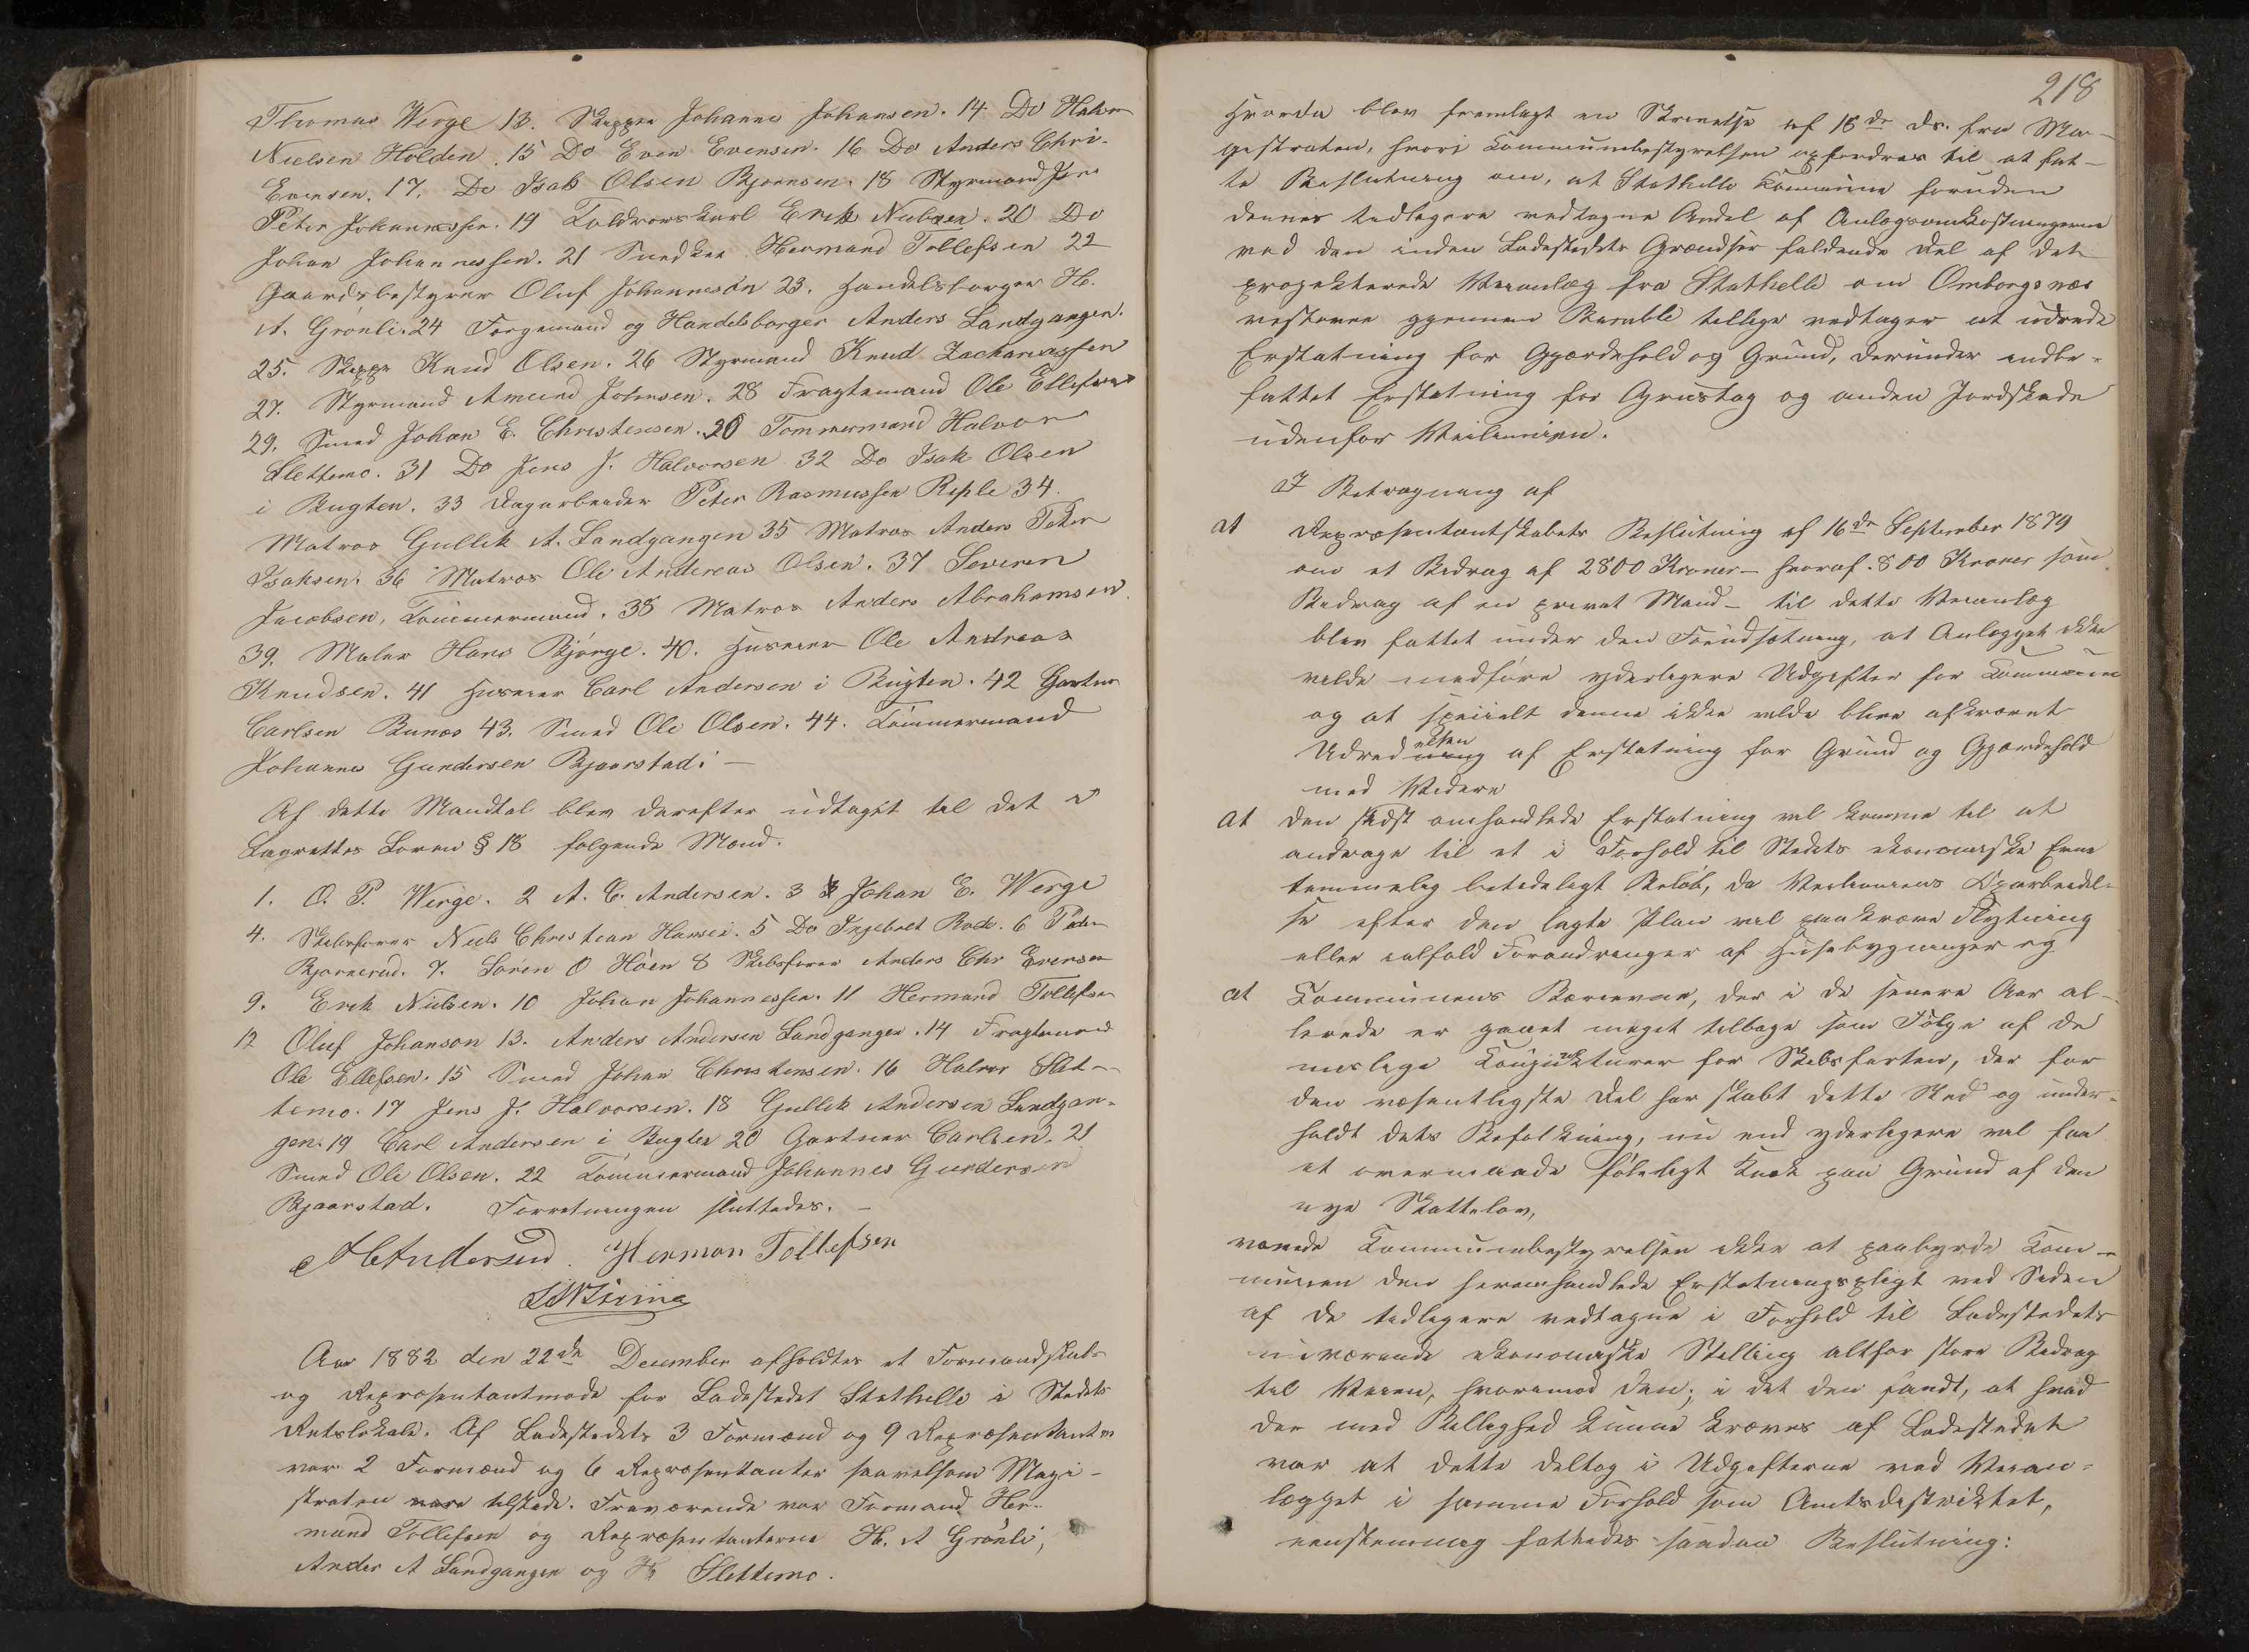 Thomas Werge 13. Skipper Johannes Johansen. 14 Do Halvor
Nielsen Holden. 15 Do Even Evensen. 16 Do Anders Chri-
Evensen. 17. Do Isak Olsen Bjørnsen. 18 Styrmand Jens
Peter Johannessen. 19 Toldrorskarl Erik Nielsen. 20 Do
Johan Johannessen. 21 Snedker Hermand Tollefsen 22
Gaardsbestyrer Oluf Johanneson 23. Handelsborger H.
A. Grönli. 24 Forgemand og Handelsborger Anders Landgangen.
25. Skipper Knud Olsen. 26 Styrmand Knud Zachariassen
27. Styrmand Amund Johnsen. 28 Fragtemand Ole Ellefsen
29. Smed Johan E. Christensen. 30 Tommermand Halvor
Slettemo. 31 Do Jens J. Halvorsen 32 Do Isak Olsen
i Bugten. 33 Dagarbeider Peter Rasmussen Riple 34.
Matros Gullik A. Landgangen 35 Matros Anders Peter
Isaksen. 36 Matros Ole Andreas Olsen. 37 Severin
Jacobsen, Tömmermand. 38 Matros Anders Abrahamsen.
39. Maler Hans Bjørge. 40. Huseier Ole Andreas
Knudsen. 41 Huseier Carl Andersen i Bugten. 42 Gartner
Carlsen Bunæs 43. Smed Ole Olsen. 44. Tömmermand
Johannes Gundersen Bjaarstad. —
Af dette Mandtal blev derefter udtaget til det i
Lagrettes Loven § 18 følgende Mænd.
1. O. P. Werge. 2 A. C. Andersen. 3 Johan E. Werge
4. Skibsfører Niels Christian Hansen. 5 Do Ingebret Rode. 6 Peder
Bjørnerud. 7. Sören O Höen 8 Skibsfører Anders Chr Evensen
9. Erik Nielsen. 10 Johan Johannessen. 11 Hermand Tollefsen
12 Oluf Johanson 13. Anders Andersen Landgangen. 14 Fragtemand
Ole Ellefsen. 15 Smed Johan Christensen. 16 Halvor Slet-
temo. 17 Jens J. Halvorsen. 18 Gullik Andersen Landgan-
gen. 19 Carl Andersen i Bugten 20 Gartner Carlsen. 21
Smed Ole Olsen. 22 Tömmermand Johannes Gundersen
Bjaarstad. Forretningen sluttedes. —
A C Andersen. Herman Tollefsen
Aar 1882 den 22de December afholdtes et Formandskabs
og Repræsentantmøde for Ladestedet Stathelle i Stedets
Retslokale. Af Ladestedets 3 Formænd og 9 Repræsentanter
var 2 Formænd og 6 Repræsentanter saavelsom Magi-
straten vare tilstede. Fraværende var Formand Her-
mand Tollefsen og Repræsentanterne H. A Grönli,
Anders A Landgangen og H Slettemo.
218
Hvorda blev fremlagt en Skrivelse af 18de ds. fra Ma-
gistraten, hvori Kommunebestyrelsen opfordres til at fat-
te Beslutning om, at Stathelle Kommune foruden
dennes tidligere vedtagne Andel af Anlægsomkostningerne
ved den inden Ladestedets Grændser faldende Del af det
projekterede Veianlæg fra Stathelle om Omborgsnæs
vestover gjennem Bamble tillige vedtager at udrede
Erstatning for Gjærdehold og Grund, derunder indbe-
fattet Erstatning for Grustag og anden Jordskade
udenfor Veilinien.
I Betragtning af
at Repræsentantskabets Beslutning af 16de September 1879
om et Bidrag af 2800 Kroner – hvoraf 800 Kroner som
Bidrag af en privat Mand – til dette Veianlæg
blev fattet under den Forudsætning, at Anlægget ikke
vilde medføre yderligere Udgifter for Kommunen
og at specielt denne ikke vilde blive afkrævet
Udredning elsen af Erstatning for Grund og Gjærdehold
med Videre
at den sidst omhandlede Erstatning vil komme til at
andrage til et i Forhold til Stedets økonomiske Evne
temmelig betydeligt Beløb, da Veiliniens Oparbeidel-
se efter den lagte Plan vil paakræve Flytning
eller ialfald Forandringer af Husebygninger og
at Kommunens Bæreevne, der i de senere Aar al-
lerede er gaaet meget tilbage som Følge af de
uslige Konjunkturer for Skibsfarten, der for
den væsentligste Del har skabt dette Sted og under-
holdt dets Befolkning, nu end yderligere vil faa
et overmaade føleligt Knæk paa Grund af den
nye Skattelov,
vovede Kommunebestyrelsen ikke at paabyrde Kom-
munen den heromhandlede Erstatningspligt ved Siden
af de tidligere vedtagne i Forhold til Ladestedets
nuværende økonomiske Stilling altfor store Bidrag
til Veien, hvorimod den, i det den fandt, at hvad
der med Billighed kunne kræves af Ladestedet
var at dette deltog i Udgifterne ved Veian-
lægget i samme Forhold som Amtsdistriktet,
eenstemmig fattedes saadan Beslutning: